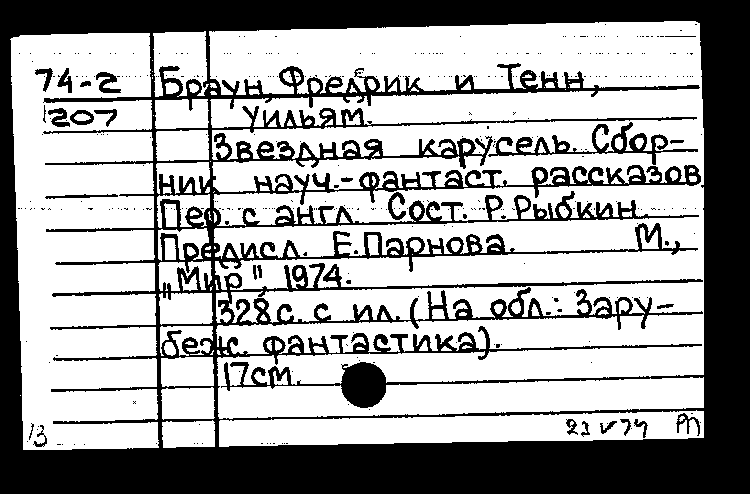 74-2 Браун, Фредрик и Тенн,
207 Уильям.
Звездная карусель. Сбор-
ник науч.-фантаст. рассказов
Пер. с англ. Сост. Р. Рыбкин.
Предисл. Е. Парнова. М.,
„Мир", 1974.
328с. с ил. (На обл.: Зару-
беж. фантастика).
17см.
13 23 V 74